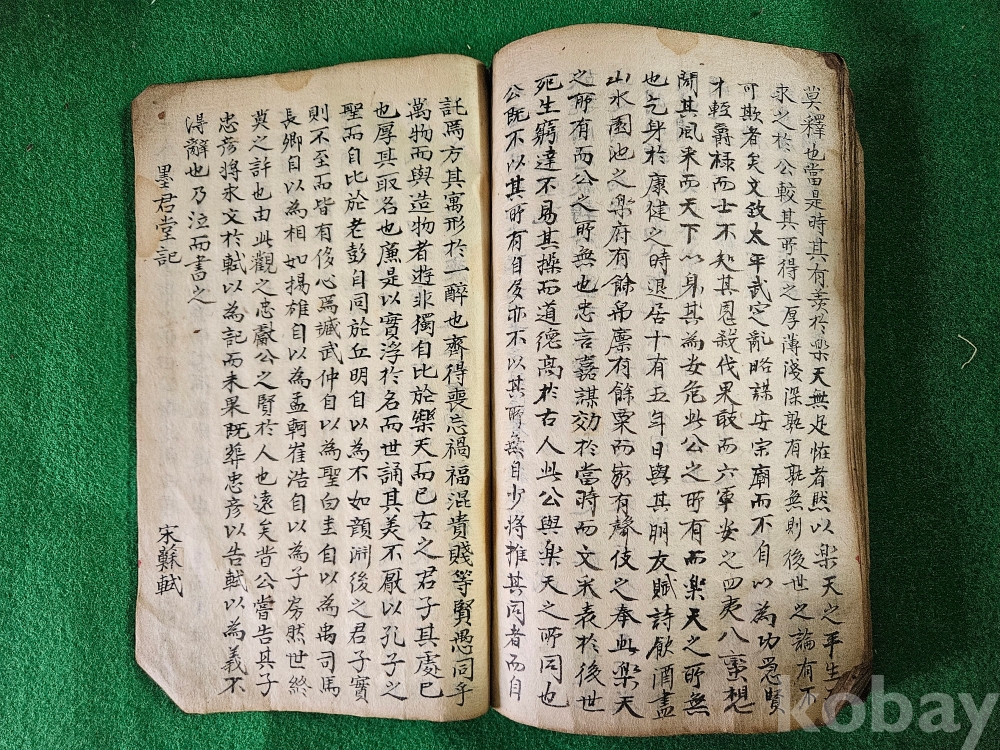 莫釋也當是時其有羨於樂天無足怪者然以樂天之平生而
求之於公較其所得之厚薄淺深孰有孰無則後世之論有不
可欺者矣文致太平武定亂略謀安宗廟而不自以為功急賢
才輕爵祿而士不知其恩殺伐果敢而六軍安之四夷八蠻想
聞其風采而天下以身其為安危此公之所有而樂天之所無
也乞身於康健之時退居十有五年日與其朋友賦詩飲酒盡
山水園池之樂府有餘帛廩有餘粟而家有聲伎之奉此樂天
之所有而公之所無也忠言嘉謀効於當時而文采表於後世
死生窮達不易其操而道德高於古人此公與樂天之所同也
公既不以其所有自多亦不以其所無自少將推其同者而自
託焉方其寓形於一醉也齊得喪忘禍福混貴賤等賢愚同乎
萬物而與造物者遊非獨自比於樂天而已古之君子其處已
也厚其取名也廉是以實浮於名而世誦其美不厭以孔子之
聖而自比於老彭自同於丘明自以為不如顏淵後之君子實
則不至而皆有侈心焉臧武仲自以為聖白圭自以為禹司馬
長卿自以為相如揚雄自以為孟軻崔浩自以為子房然世終
莫之許也由此觀之忠獻公之賢於人也遠矣昔公嘗告其子
忠彥將求文於軾以為記而未果既葬忠彥以告軾以為義不
淂辭也乃泣而書之
墨君堂記 宋蘇軾
kobay